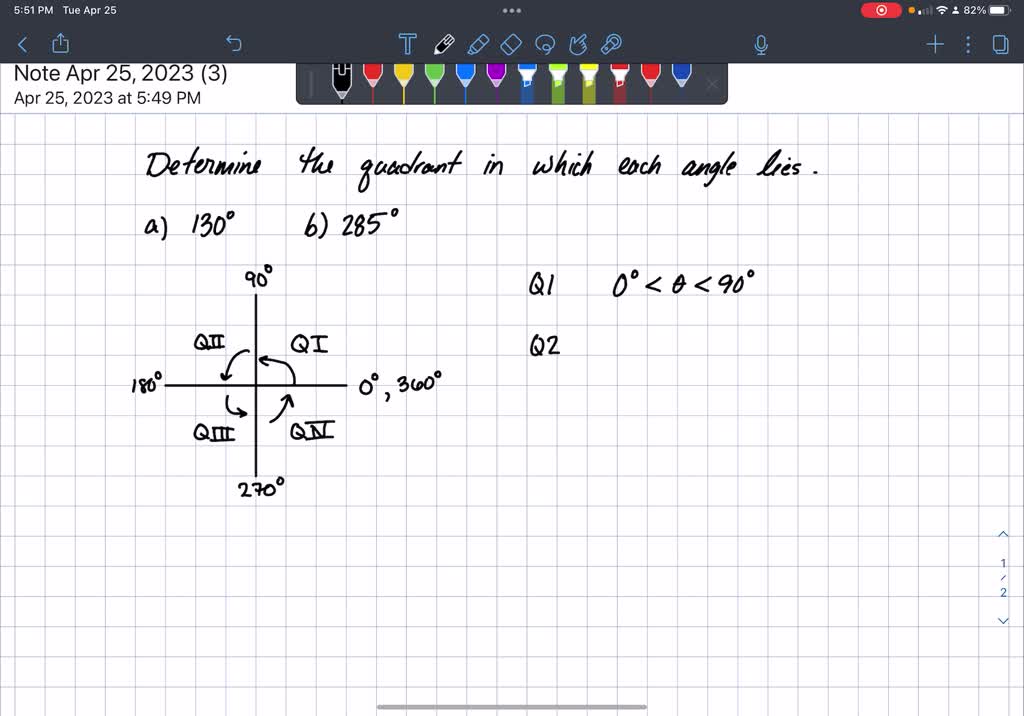 5:51 PM Tue Apr 25
82%
T
Note Apr 25, 2023 (3)
Apr 25, 2023 at 5:49 PM
Determine the quadrant in which each angle lies.
a) 130° b) 285°
90°
Q1 0° < θ < 90°
QII QI
Q2
180° 0°, 360°
QIII QIV
270°
1
/
2